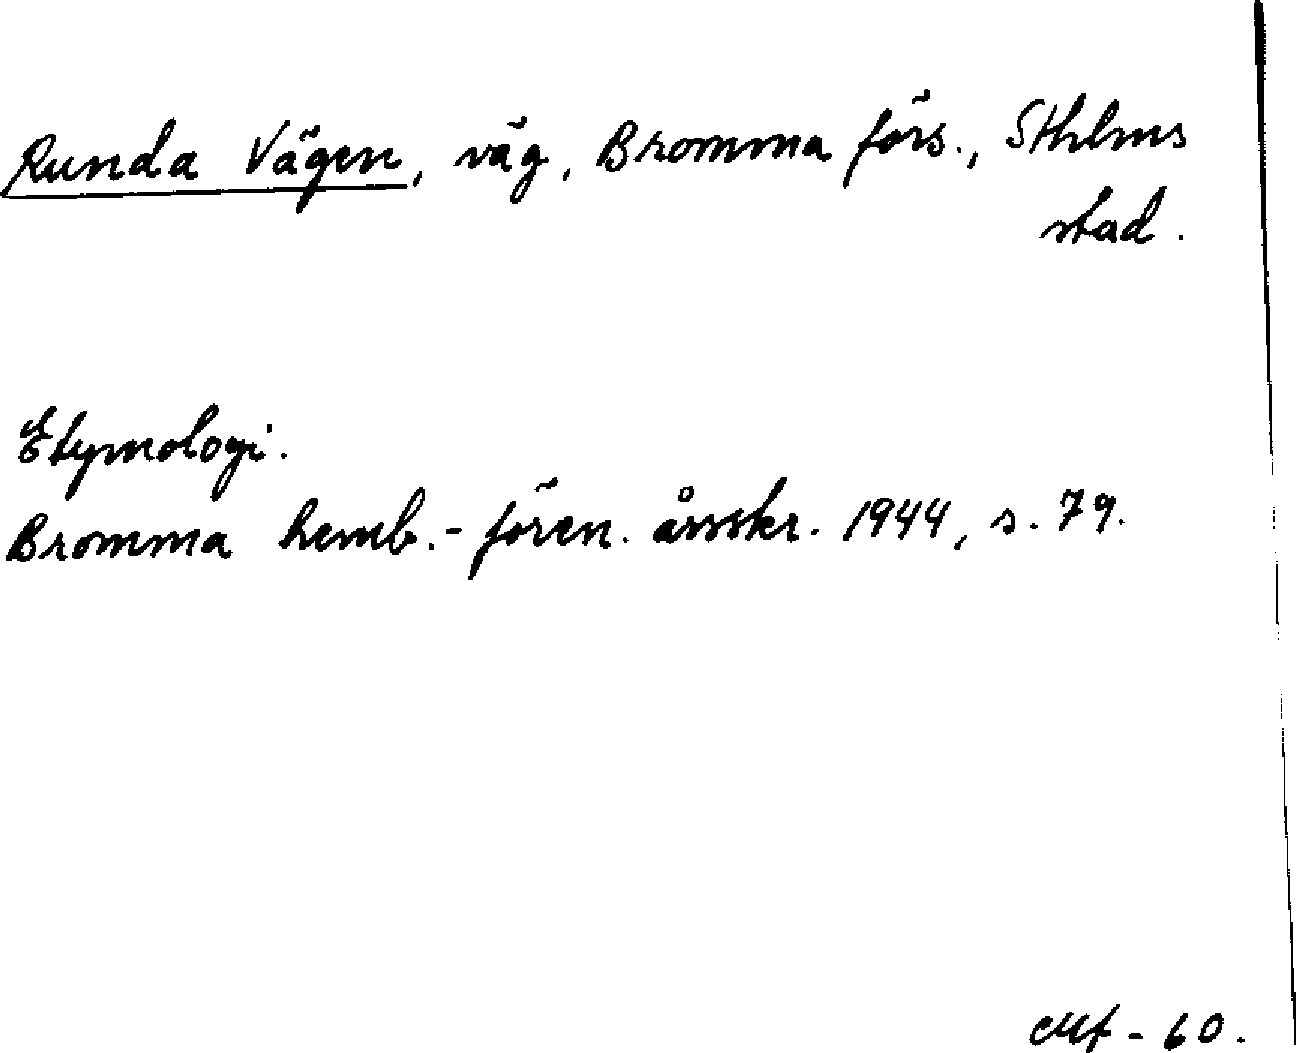 Runda Vägen, väg, Bromma förs., Sthlms
stad.
Etymologi.
Bromma hemb.-fören. årsskr. 1944, s. 79.
Mf - 60.